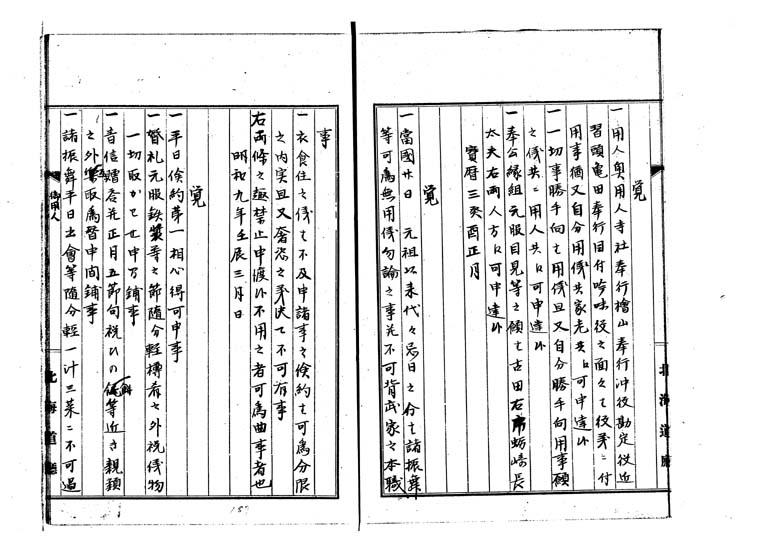 覚
一 用人奥用人寺社奉行檜山奉行沖役勘定役近
習頭亀田奉行目付吟味役之面々ゟ役義ニ付
用事猶又自分用儀共家老共江可申達候
一 一切事勝手向之用儀且又自分勝手向用事願
之儀共ニ用人共江可申達候
一 奉公縁組元服目見等之願ハ古田右 蛎崎長
太夫右両人方江可申達候
寶暦三癸酉正月
覚
一 當國廿日 元祖以来代々忌日之分ハ諸振舞
等可為無用儀勿論之事尤不可背武家之本職
事
一 衣食住之儀ハ不及申諸事之倹約ハ可為分限
之内実且又奢恣之義决而不可有事
右両條之趣禁止申渡候不用之者可為曲事者也
明和九年壬辰三月日
覚
一 平日倹約第一相心得可申事
一 婚礼元服 等之節随分軽 着之外祝儀物
一切取かハせ申間鋪事
一 音信贈答尤正月五節句祝ひの 等近き親類
之外 取為替申間鋪事
一 諸振舞平日出會等随分軽一汁三菜ニ不可過
御用人
北海道廳
北海道廳
187